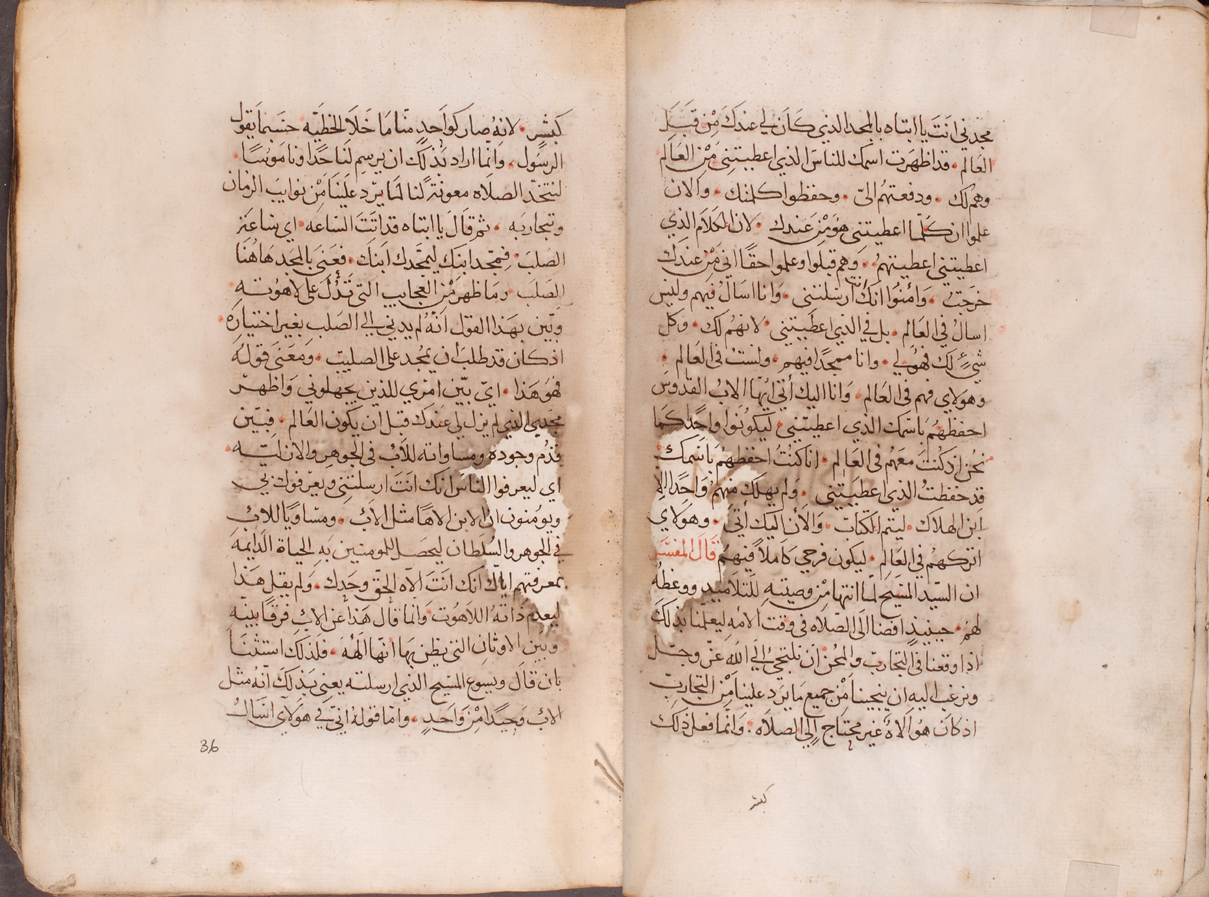 مجدني انت يا ابتاه بالمجد الذي كان لي عندك من قبل
العالم • قد اظهرت اسمك للناس الذي اعطيتني من العالم
وهم لك • ودفعتهم الىّ • وحفظوا كلمتك • والان
علموا ان كلما اعطيتني هو من عندك • لان الكلام الذي
اعطيتني اعطيتهم • وهم قبلوا وعلموا حقا اني من عندك
خرجت • وامنوا انك ارسلتني • وانا اسال فيهم وليس
اسال في العالم • بل في الذي اعطيتني • لانهم لك • وكل
شيء لك فهو لي • وانا ممجدا فيهم • ولست في العالم •
وهولاي فهم في العالم • وانا اليك آتي ايها الاب القدوس
احفظهم باسمك الذي اعطيتني • ليكونوا واحدا كما
نحن اذ كنت معهم في العالم • انا كنت احفظهم باسمك
قد حفظت الذي اعطيتني • ولم يهلك منهم واحدا الا
ابن الهلاك • ليتم الكتاب • والان اليك آتي • وهولاي
اتركهم في العالم • ليكون فرحي كاملا فيهم قال المفسر
ان السيد المسيح لما انتها من وصيته للتلاميذ ووعظه
لهم • حينيذ افضا الى الصلاه في وقت الامه ليعلمنا بذلك
اذا وقعنا في التجارب والمحن ان نلتجي الي الله عز وجل
ونرغب اليه ان ينجينا من جميع ما يرد علينا من التجارب
اذ كان هو الاه غير محتاج الي الصلاه • وانما فعل ذلك
كبشر
كبشر • لانه صار كواحد منا ما خلا الخطيه حسبما يقول
الرسول • وانما اراد بذلك ان يرسم لنا حدا وناموسا •
لنتخذ الصلاه معونة لنا لما يرد علينا من نوايب الزمان
وتجاربه • ثم قال يا ابتاه قد اتت الساعه • اي ساعة
الصلب • فمجد ابنك ليمجدك ابنك • فعنى بالمجد هاهنا
الصلب • وما ظهر من العجايب التي تدل على لاهوته •
وبين بهذا القول انه لم يدني الي الصلب بغير اختياره •
اذ كان قد طلب ان يمجد على الصليب • ومعنى قوله
فهو هذا • اي بين امري للذين يجهلوني واظهر
مجدي الذي لم يزل لي عندك قبل ان يكون العالم • فبين
قدم وجوده ومساواته للاب في الجوهر والازليه •
اي ليعرفوا الناس انك انت ارسلتني ويعرفونى
ويومنون ان الابن الاها مثل الاب • ومساويا للاب
في الجوهر والسلطان ليحصل للمومنين به الحياة الدايمة
بمعرفتهم اياك انك انت الاه الحق وحدك • ولم يقل هذا
ليعدم ذاته اللاهوت • وانما قال هذا عن الاب فرقا بينه
وبين الاوثان التي يظن بها انها آلهه • فلذلك استثنا
بان قال ويسوع المسيح الذي ارسلته يعني بذلك انه مثل
الاب وحيدا من واحد • واما قوله اني في هولاي اسال
36